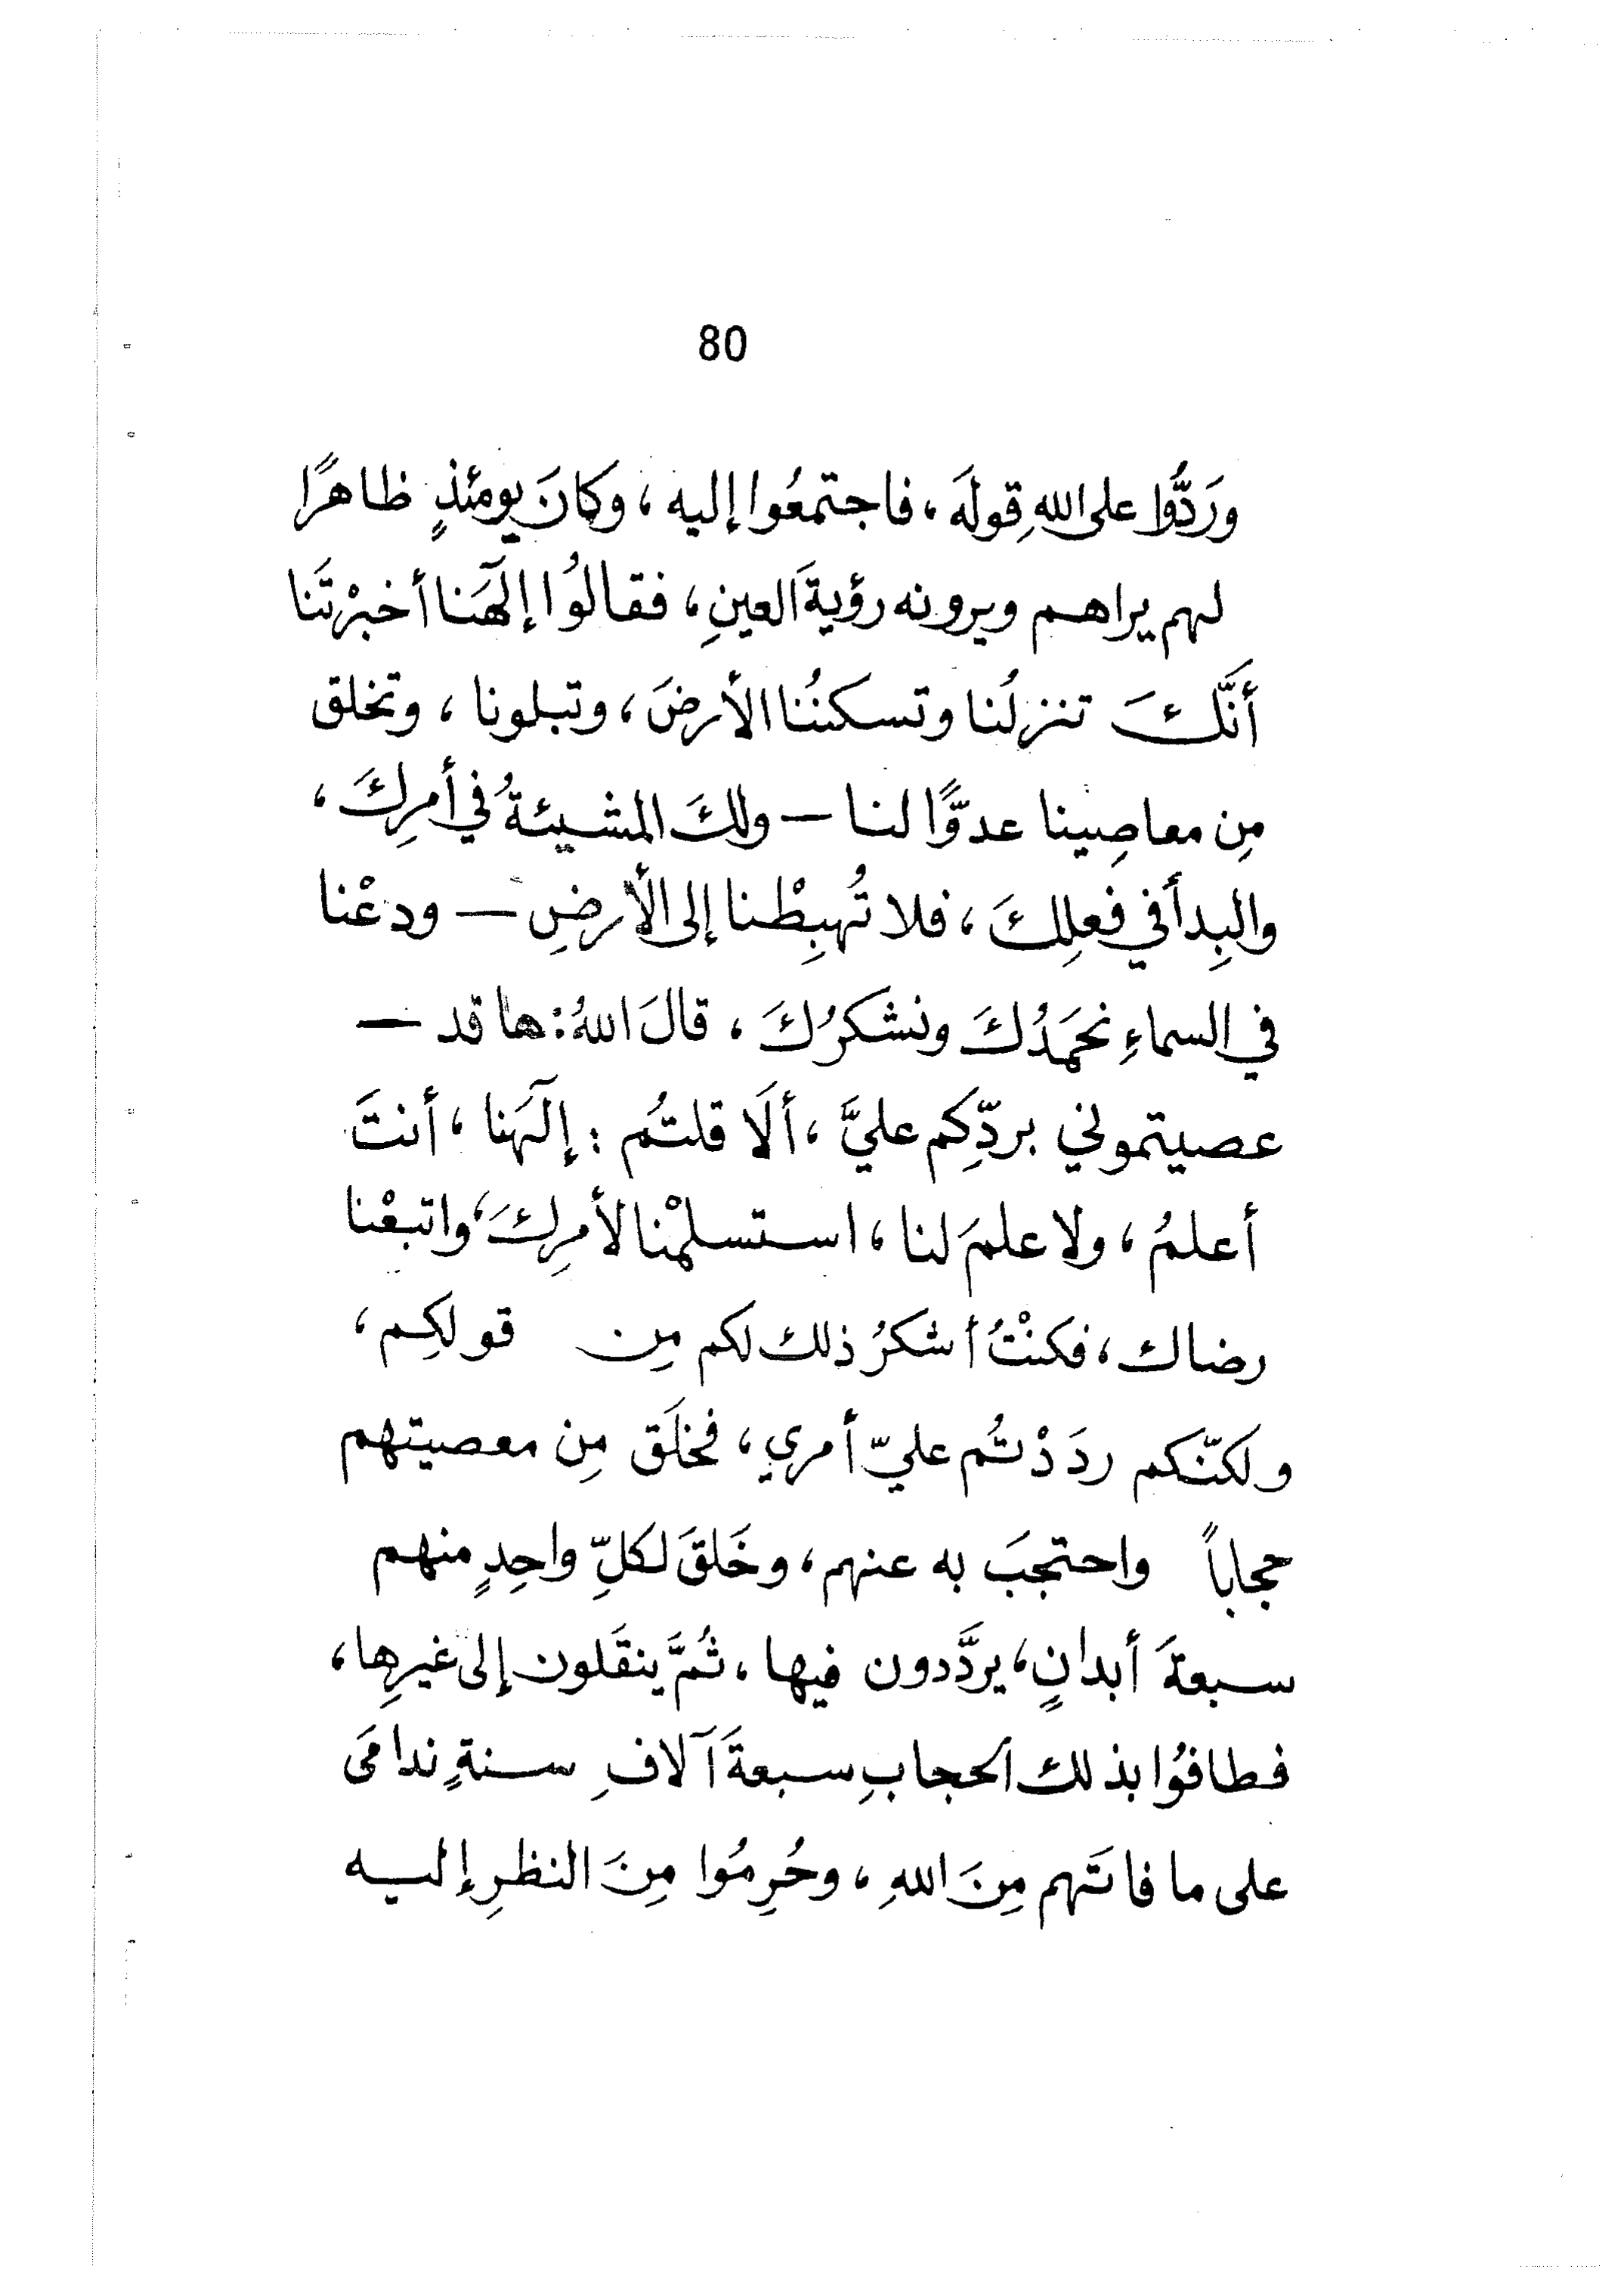 80
ورَدُّوا على اللهِ قولَه، فاجتمعُوا إليه، وكانَ يومئذٍ ظاهرًا
لهم يراهم ويرونه رؤيةَ العينِ، فقالُوا إلَهَنا أخبرْتَنا
أنَّكَ تنزلُنا وتسكنُنا الأرضَ، وتبلونا، وتخلق
مِن معاصِينا عدوًّا لنا — ولكَ المشيئةُ في أمرِكَ،
والبِدأ في فعلِكَ، فلا تُهبِطْنا إلى الأرضِ — ودعْنا
في السماءِ نحمَدُكَ ونشكرُكَ، قالَ اللهُ: ها قد —
عصيتموني بردِّكم عليَّ، ألَا قلتُم: إلَهَنا، أنتَ
أعلمُ، ولا علمَ لنا، استسلمْنا لأمرِكَ، واتبعْنا
رضاك، فكنْتُ أشكرُ ذلك لكم مِن قولكِم،
ولكنّكم ردَدْتُم عليّ أمري، فخلَق مِن معصيتهم
حجاباً واحتجبَ به عنهم، وخَلقَ لكلِّ واحِدٍ منهم
سبعةَ أبدانٍ، يردَّدون فيها، ثُمَّ ينقَلون إلى غيرِها،
فطافوُا بذلك الحجابِ سبعةَ آلافِ سنةٍ ندامَى
على ما فاتَهم مِنَ اللهِ، وحُرِمُوا مِنَ النظرِ إليه